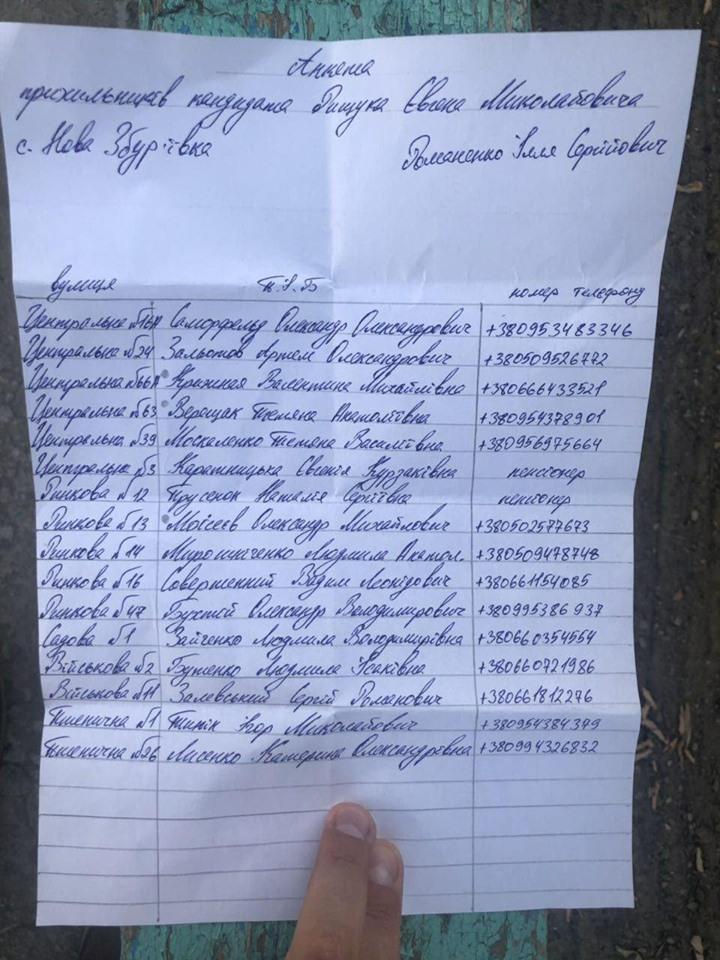 Анкета
прихильників кандидата Рищука Євгена Миколайовича
с. Нова Збур'ївка Романенко Ілля Сергійович
вулиця П.І.Б номер телефону
Центральна №16А Олександр Олександрович +380953483346
Центральна №24 Артем Олександрович +380509526772
Центральна №66А Валентина Михайлівна +380666433521
Центральна №63 Верещак Тетяна Анатоліївна +380954378901
Центральна №39 Москаленко Тетяна Василівна +380956975664
Центральна №3 Євгенія пенсіонер
Ринкова №12 Прусенок Наталія Сергіївна пенсіонер
Ринкова №13 Моісеєв Олександр Михайлович +380502577673
Ринкова №14 Мирошніченко Людмила Анатол. +380509478748
Ринкова №16 Совершенний Вадим Леонідович +380661154085
Ринкова №47 Олександр Володимирович +380995386937
Садова №1 Зайченко Людмила Володимирівна +380660354554
Військова №2 Буженко Людмила Ісаківна +380660721986
Військова №11 Залевський Сергій Романович +380661812276
Пшенична №1 Ігор Миколайович +380954384379
Пшенична №26 Лисенко Катерина Олександрівна +380994326832